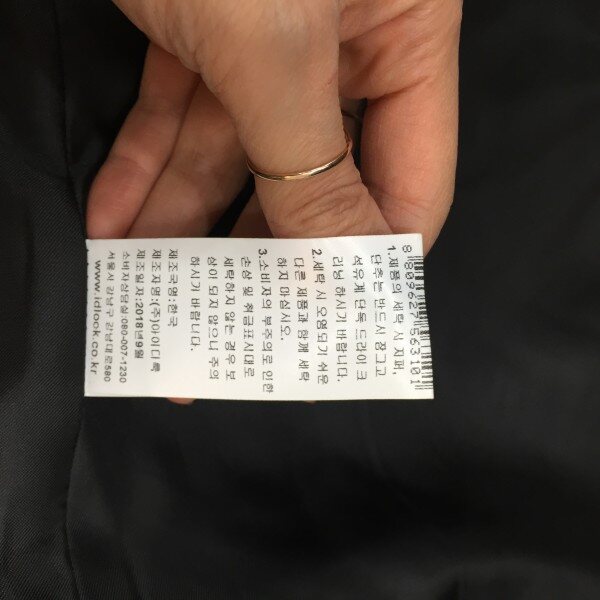 8 809627 563101
1.제품의 세탁 시 지퍼,
단추는 반드시 잠그고
석유계 단독 드라이크
리닝 하시기 바랍니다.
2.세탁 시 오염되기 쉬운
다른 제품과 함께 세탁
하지 마십시오.
3.소비자의 부주의로 인한
손상 및 취급표시대로
세탁하지 않는 경우 보
상이 되지 않으니 주의
하시기 바랍니다.
제조국명:한국
제조자명:(주)아이디룩
제조일자:2018년9월
소비자상담실:080-007-1230
서울시 강남구 강남대로580
www.idlook.co.kr